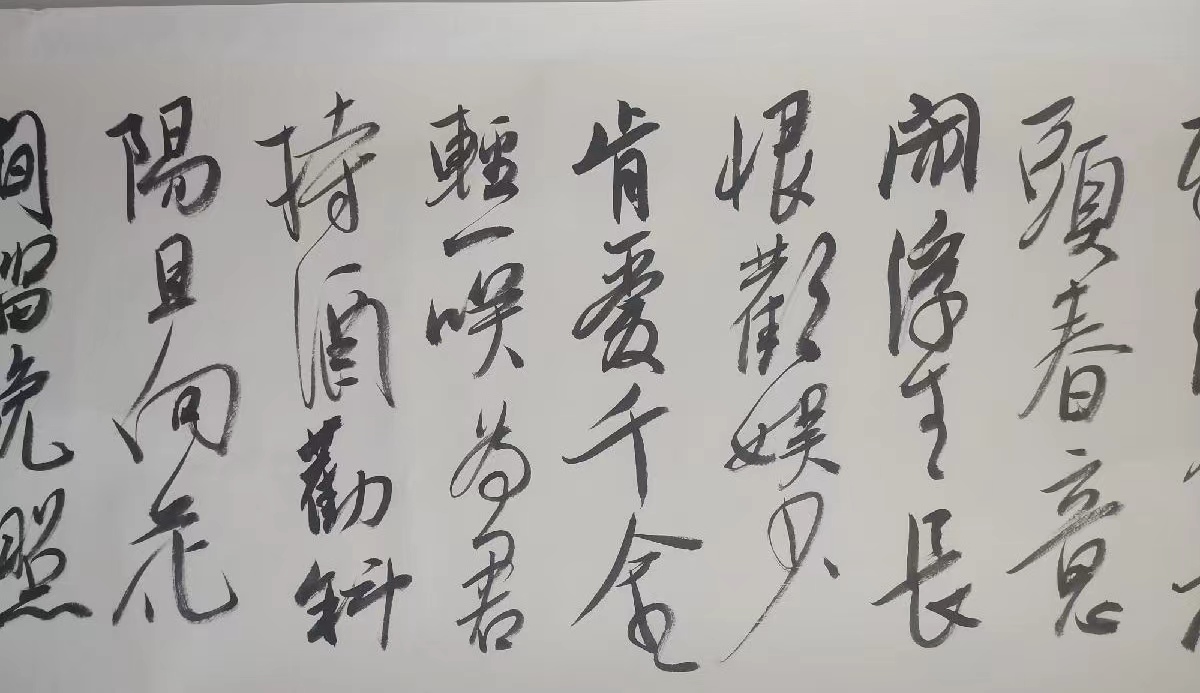 頭春意
閙浮生長
恨歡娛少
肯愛千金
輕一咲為君
持酒勸斜
陽且向花
間留晚照